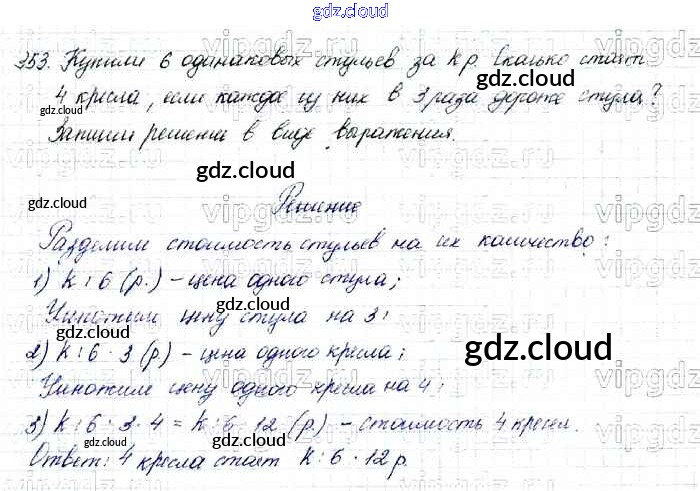 gdz.cloud
353. Купили 6 одинаковых стульев за k р. Сколько стоят
4 кресла, если каждое из них в 3 раза дороже стула?
Запиши решение в виде выражения.
gdz.cloud
gdz.cloud
Решение
Разделим стоимость стульев на их количество:
1) k : 6 (р.) – цена одного стула;
gdz.cloud
Умножим цену стула на 3:
2) k : 6 · 3 (р.) – цена одного кресла;
gdz.cloud
Умножим цену одного кресла на 4:
3) k : 6 · 3 · 4 = k : 6 · 12 (р.) – стоимость 4 кресел.
gdz.cloud
gdz.cloud
Ответ: 4 кресла стоят k : 6 · 12 р.